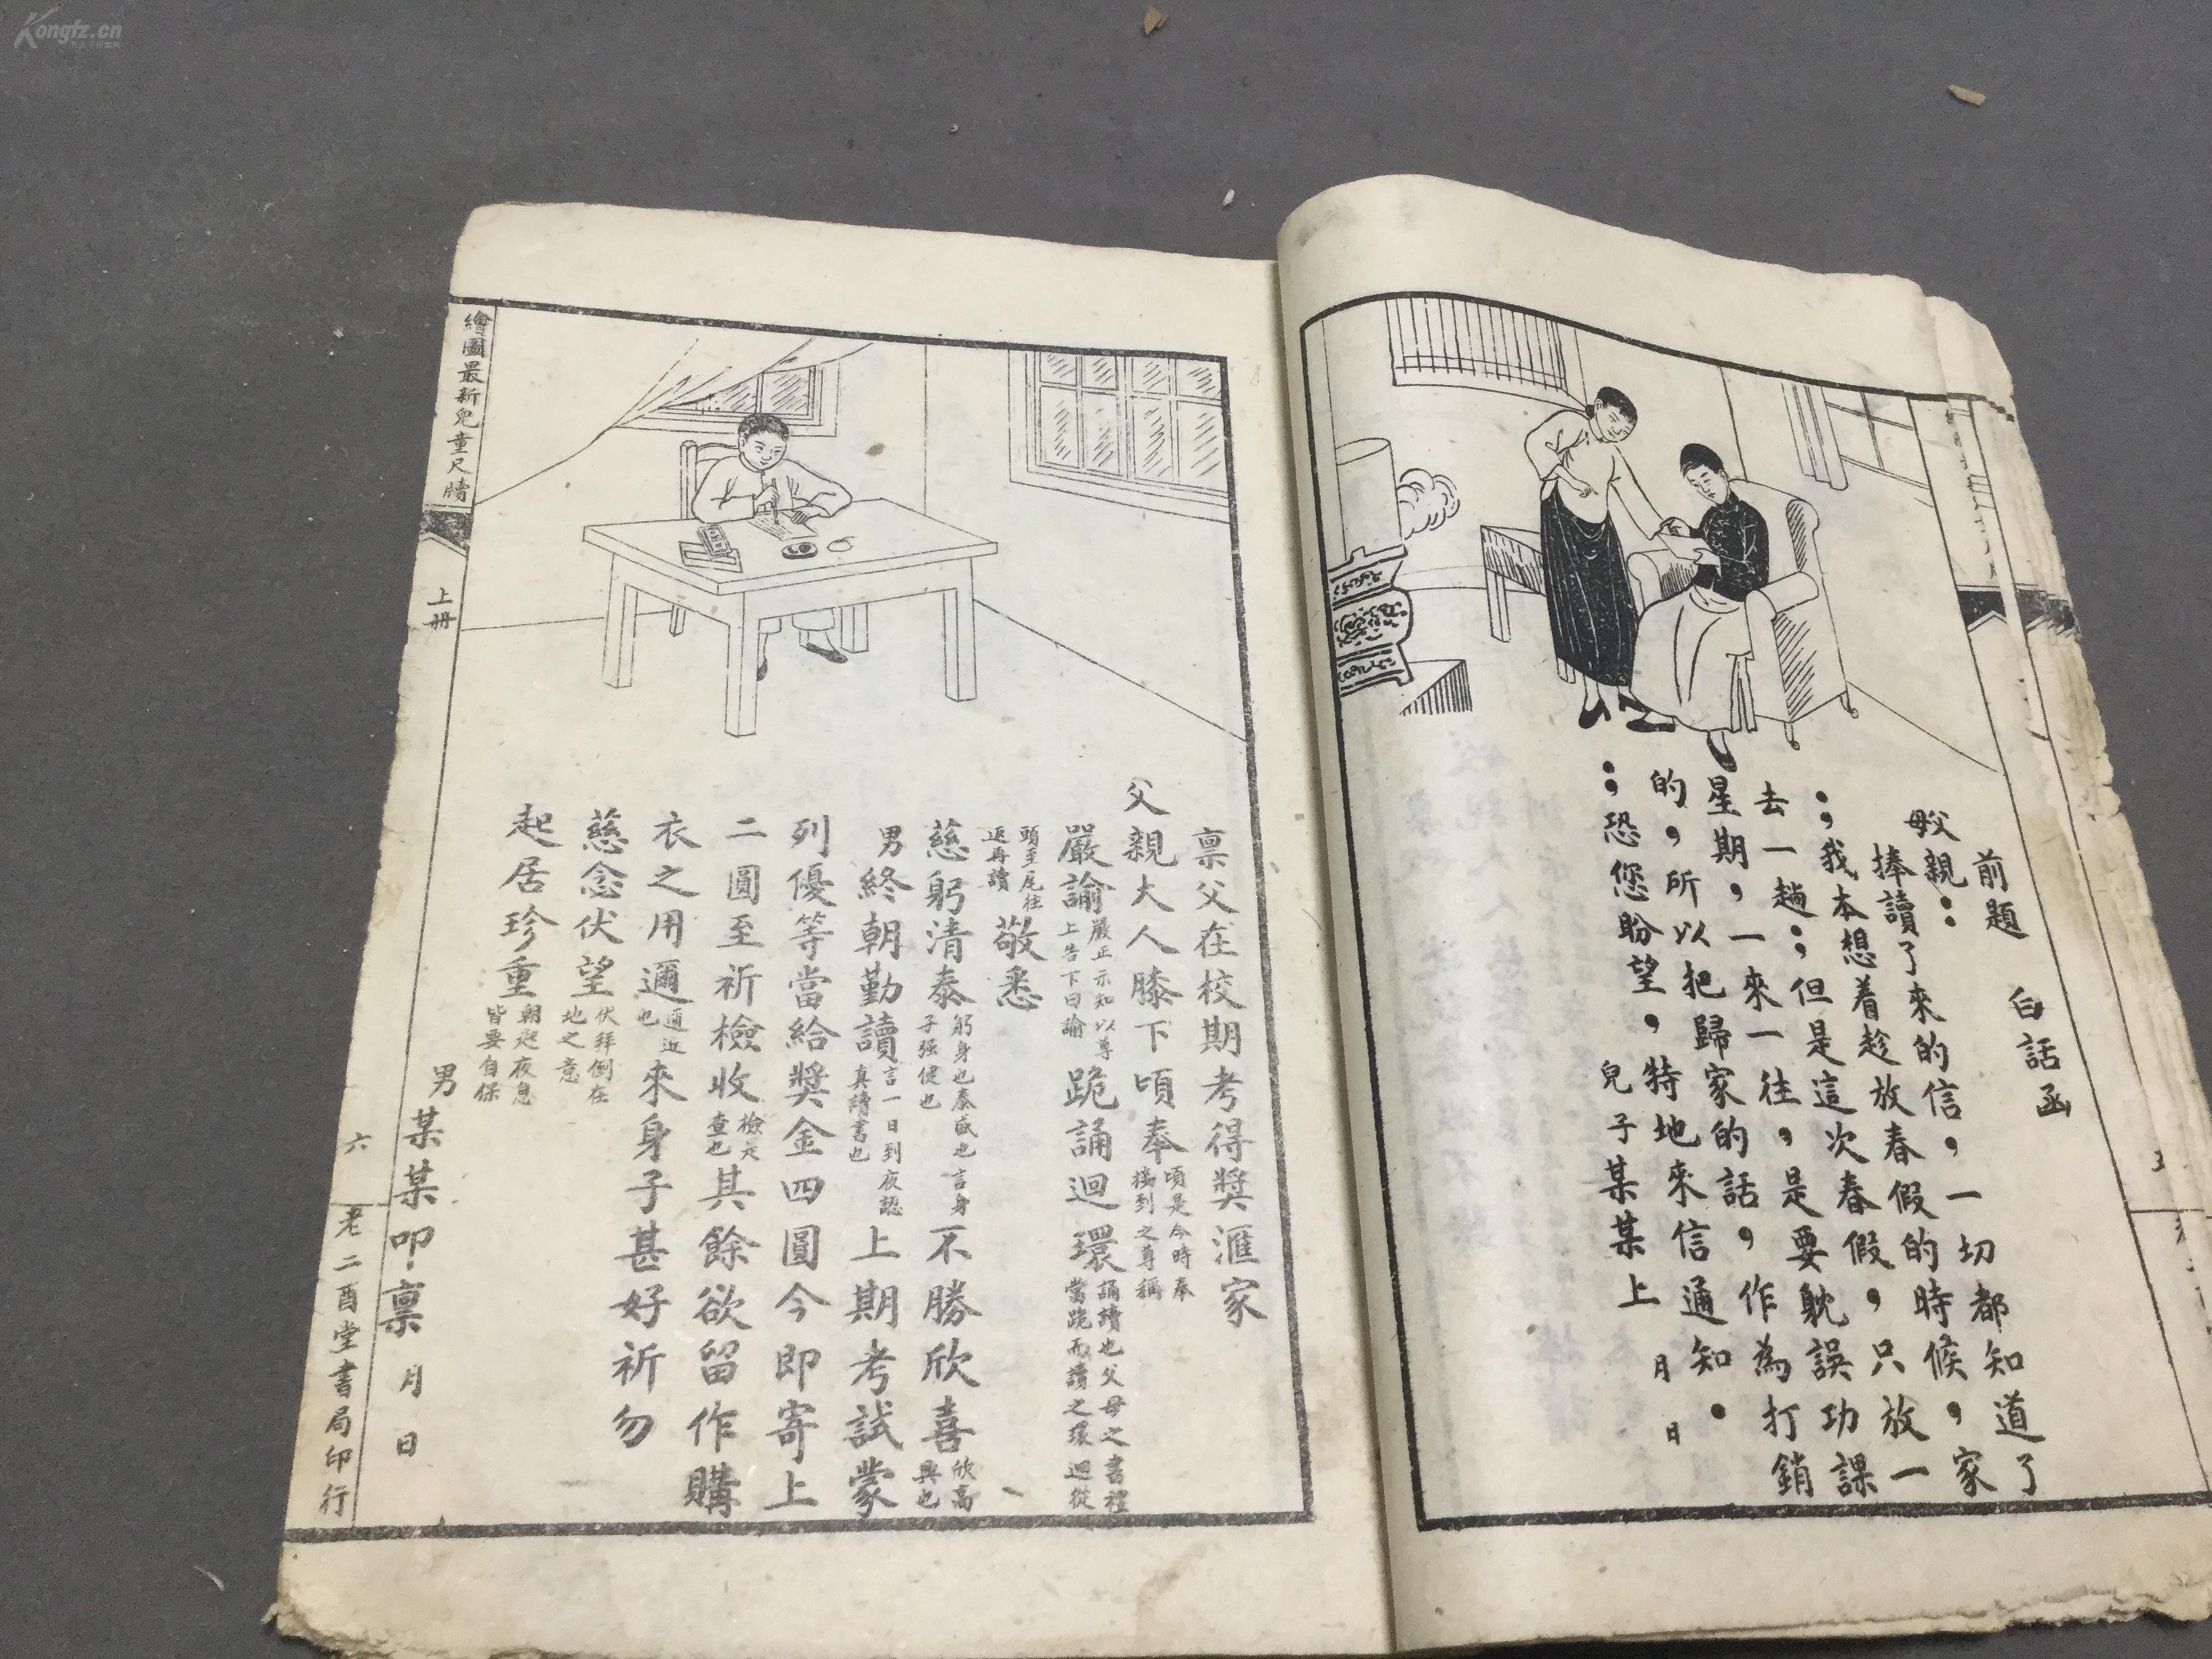 前題　白話函
父母親：
捧讀了來的信，一切都知道了
；我本想着趁放春假的時候，家
去一趟；但是這次春假，只放一
星期，一來一往，是要躭誤功課
的，所以把歸家的話，作為打銷
；恐您盼望，特地來信通知。
兒子某某上　月　日
稟父在校期考得獎滙家
父親大人膝下頃奉頃是今時奉接到之尊稱
嚴諭嚴正示知以尊上告下曰諭跪誦迴環誦讀也父母之書禮當跪而讀之環迴從
頭至尾往返再讀敬悉
慈躬清泰躬身也泰咸也言身子强健也不勝欣喜欣高興也
男終朝勤讀言一日到夜認真讀書也上期考試蒙
列優等當給獎金四圓今即寄上
二圓至祈檢收檢是查也其餘欲留作購
衣之用邇邇近也來身子甚好祈勿
慈念伏望伏拜倒在地之意
起居珍重朝起夜息皆要自保
男某某叩稟　月　日
繪圖最新兒童尺牘
上册
六
老二酉堂書局印行
Kongfz.cn